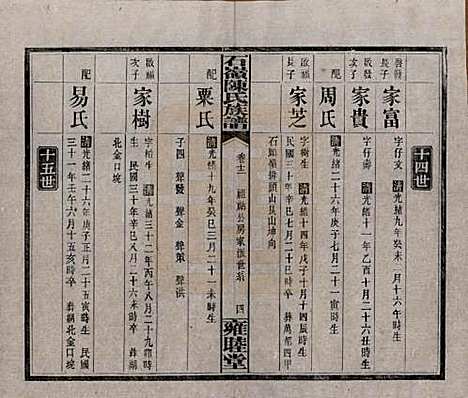 十四世
啟發長子
家富
字仔文 清光緒九年癸未二月十六亥時生
啟發次子
家貴
字仔壽 清光緒十一年乙酉十月二十六丑時生
配
周氏
清光緒二十六年庚子七月二十一寅時生
啟福長子
家芝
字樹生 清光緒十四年戊子十月十四辰時生
民國三十年辛巳七月二十巳時卒 葬萬都四甲
石頭嶺排頭山艮山坤向
石嶺陳氏族譜
卷十二
四
雍睦堂
配
粟氏
清光緒十九年癸巳三月二十一未時生
子四 聲發 聲金 聲策 聲洪
啟福次子
家樹
字柏生 清光緒三十二年丙午八月二十九寅時
生 民國三十年辛巳八月二十六未時卒 葬湖
北金口垸
配
易氏
清光緒二十六年庚子正月二十五寅時生 民國
三十一年壬午六月十五亥時卒 葬湖北金口垸
十五世